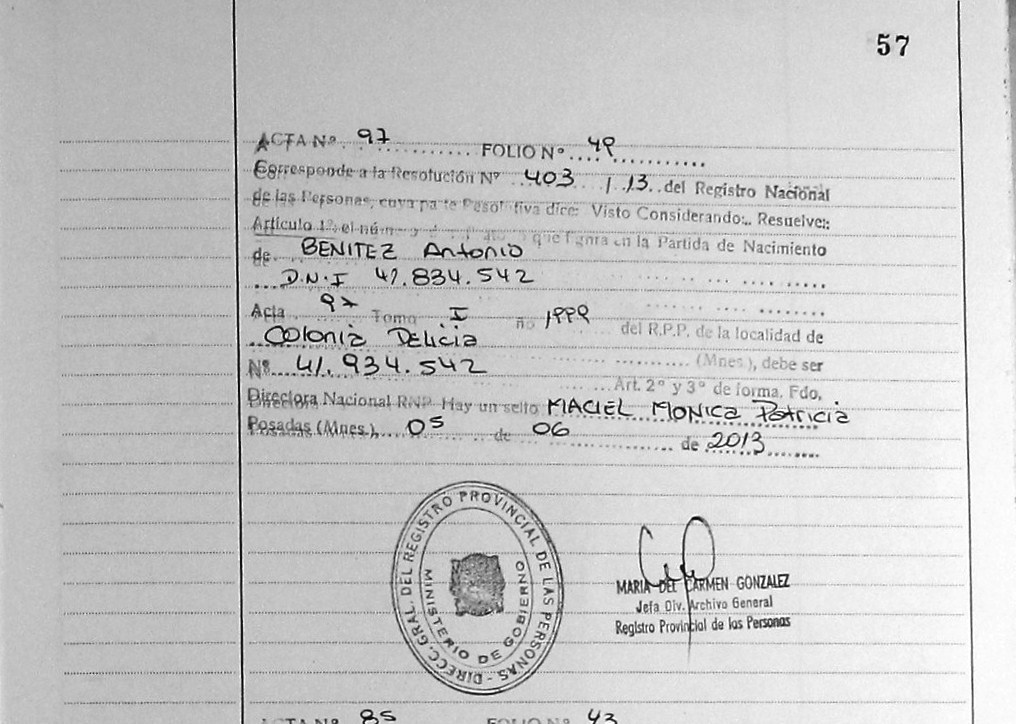 57
ACTA Nº 97 FOLIO Nº 49
Corresponde a la Resolución Nº 403 / 13 del Registro Nacional
de las Personas, cuya parte Resolutiva dice: Visto Considerando: Resuelve:
Artículo 1º el que figura en la Partida de Nacimiento
de BENITEZ Antonio
D.N.I 41.834.542
Acta 97 Tomo I ño 1999 del R.P.P. de la localidad de
Colonia Delicia (Mnes.), debe ser
Nº 41.934.542 Art. 2º y 3º de forma. Fdo,
Directora Nacional RNP. Hay un sello MACIEL MONICA Patricia
Posadas (Mnes.) 05 de 06 de 2013
DIRECC. GRAL. DEL REGISTRO PROVINCIAL DE LAS PERSONAS -
MINISTERIO DE GOBIERNO
MARIA DEL CARMEN GONZALEZ
Jefa Div. Archivo General
Registro Provincial de las Personas
ACTA Nº 85 FOLIO Nº 43